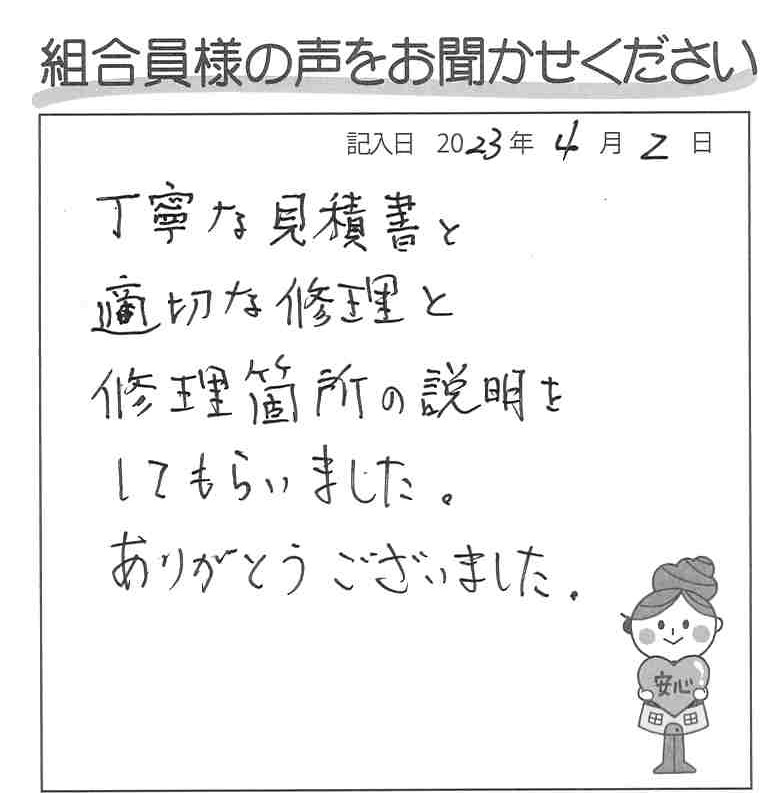 組合員様の声をお聞かせください
記入日 2023年 4月 2日
丁寧な見積書と
適切な修理と
修理箇所の説明を
してもらいました。
ありがとうございました。
安心